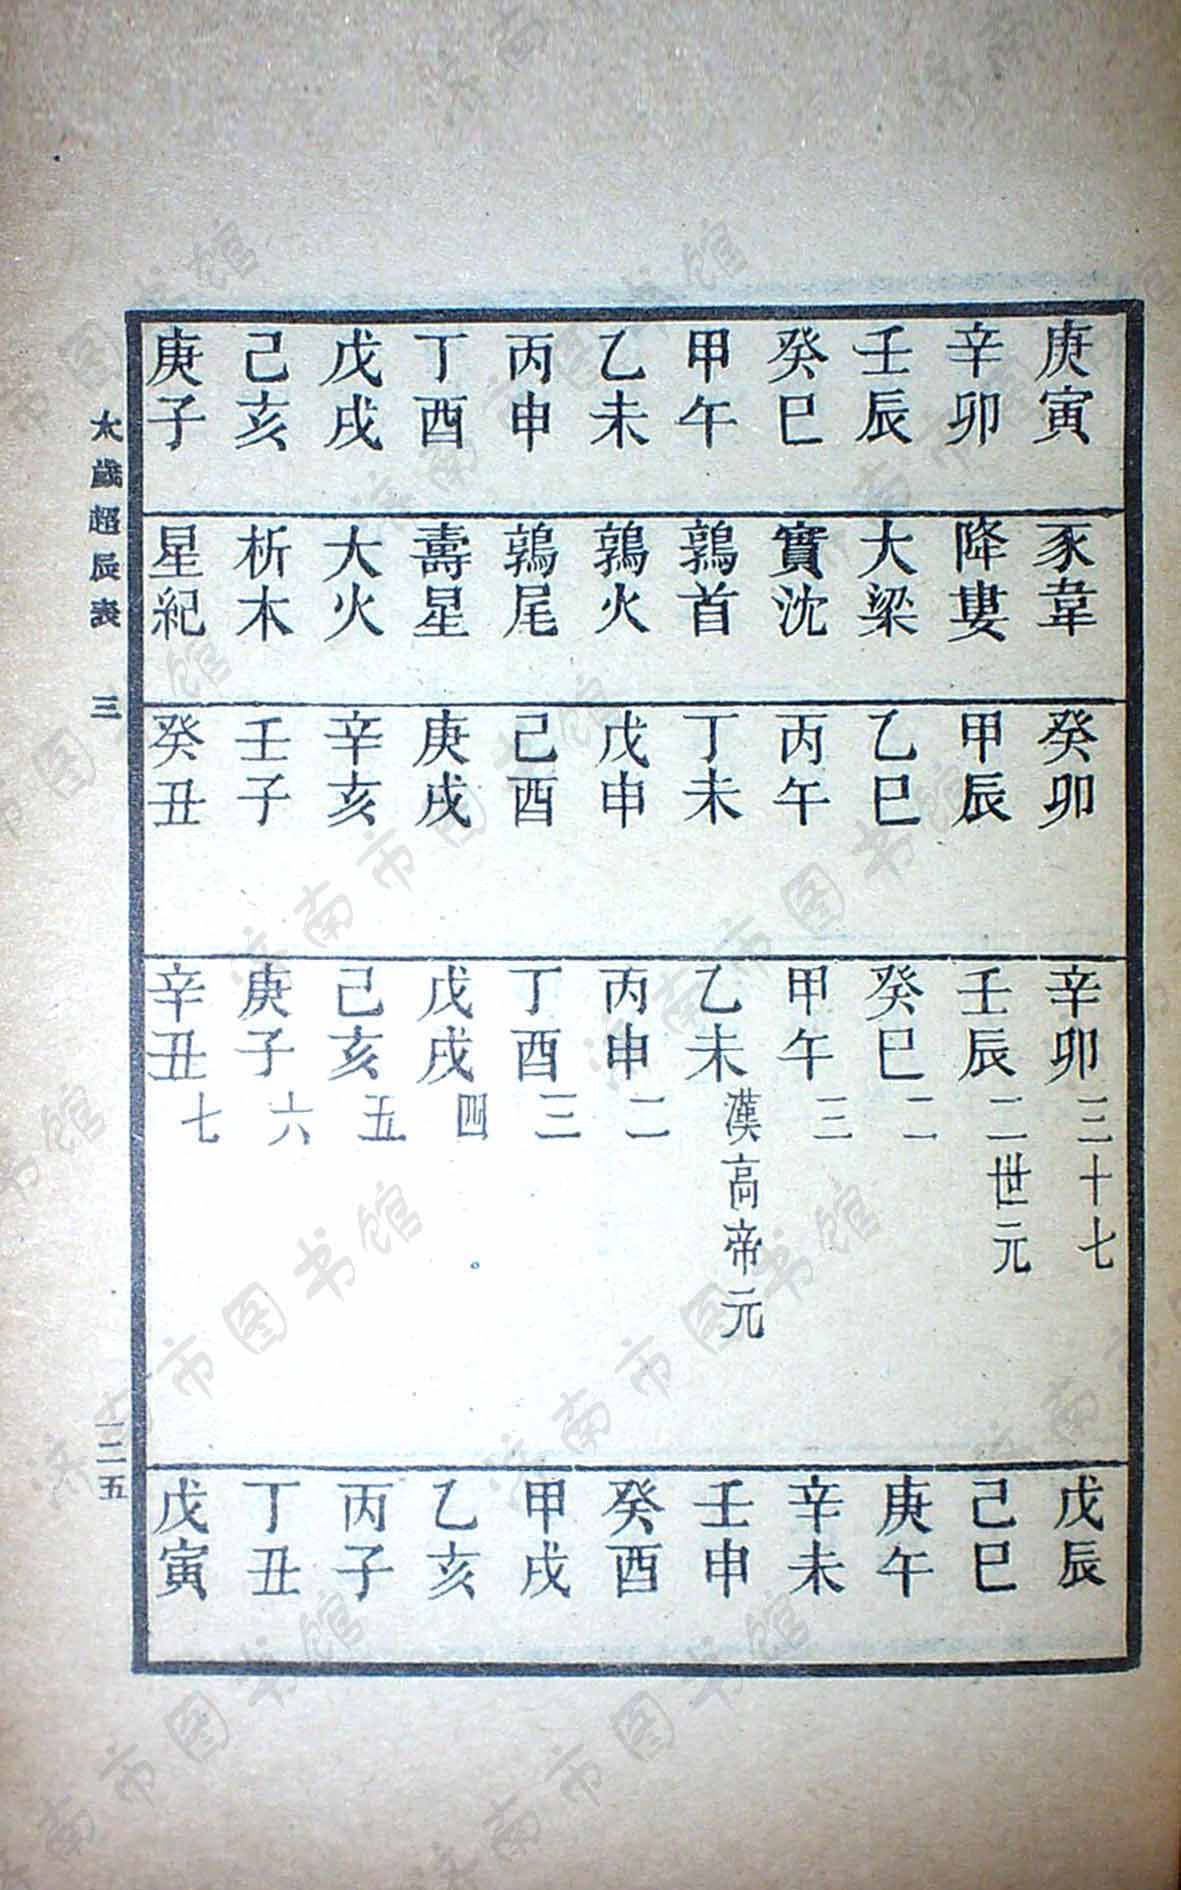 庚寅 豕韋 癸卯 辛卯三十七 戊辰
辛卯 降婁 甲辰 壬辰二世元 己巳
壬辰 大梁 乙巳 癸巳二 庚午
癸巳 實沈 丙午 甲午三 辛未
甲午 鶉首 丁未 乙未漢高帝元 壬申
乙未 鶉火 戊申 丙申二 癸酉
丙申 鶉尾 己酉 丁酉三 甲戌
丁酉 壽星 庚戌 戊戌四 乙亥
戊戌 大火 辛亥 己亥五 丙子
己亥 析木 壬子 庚子六 丁丑
庚子 星紀 癸丑 辛丑七 戊寅
太歲超辰表 三 一二五
济南市图书馆